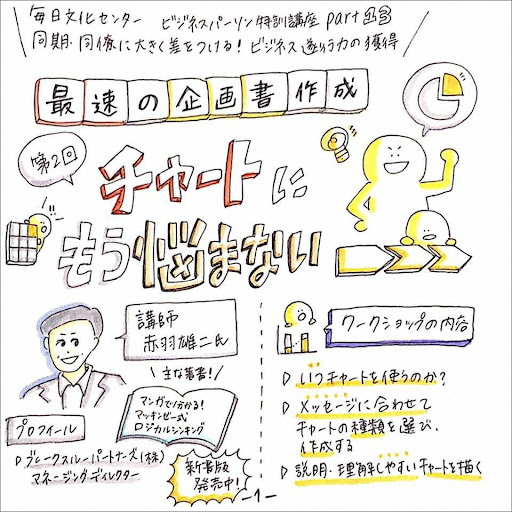 毎日文化センター ビジネスパーソン特訓講座 part13
同期・同僚に大きく差をつける! ビジネス遂行力の獲得
最速の企画書作成
第2回
チャートに
もう悩まない
講師
赤羽雄二氏
主な著書!
マンガで分かる!
マッキンゼー式
ロジカルシンキング
プロフィール
ブレークスルーパートナーズ(株)
マネージングディレクター
新書版
発売中!
ワークショップの内容
いつチャートを使うのか?
メッセージに合わせて
チャートの種類を選び、
作成する
説明・理解しやすいチャートを描く
-1-